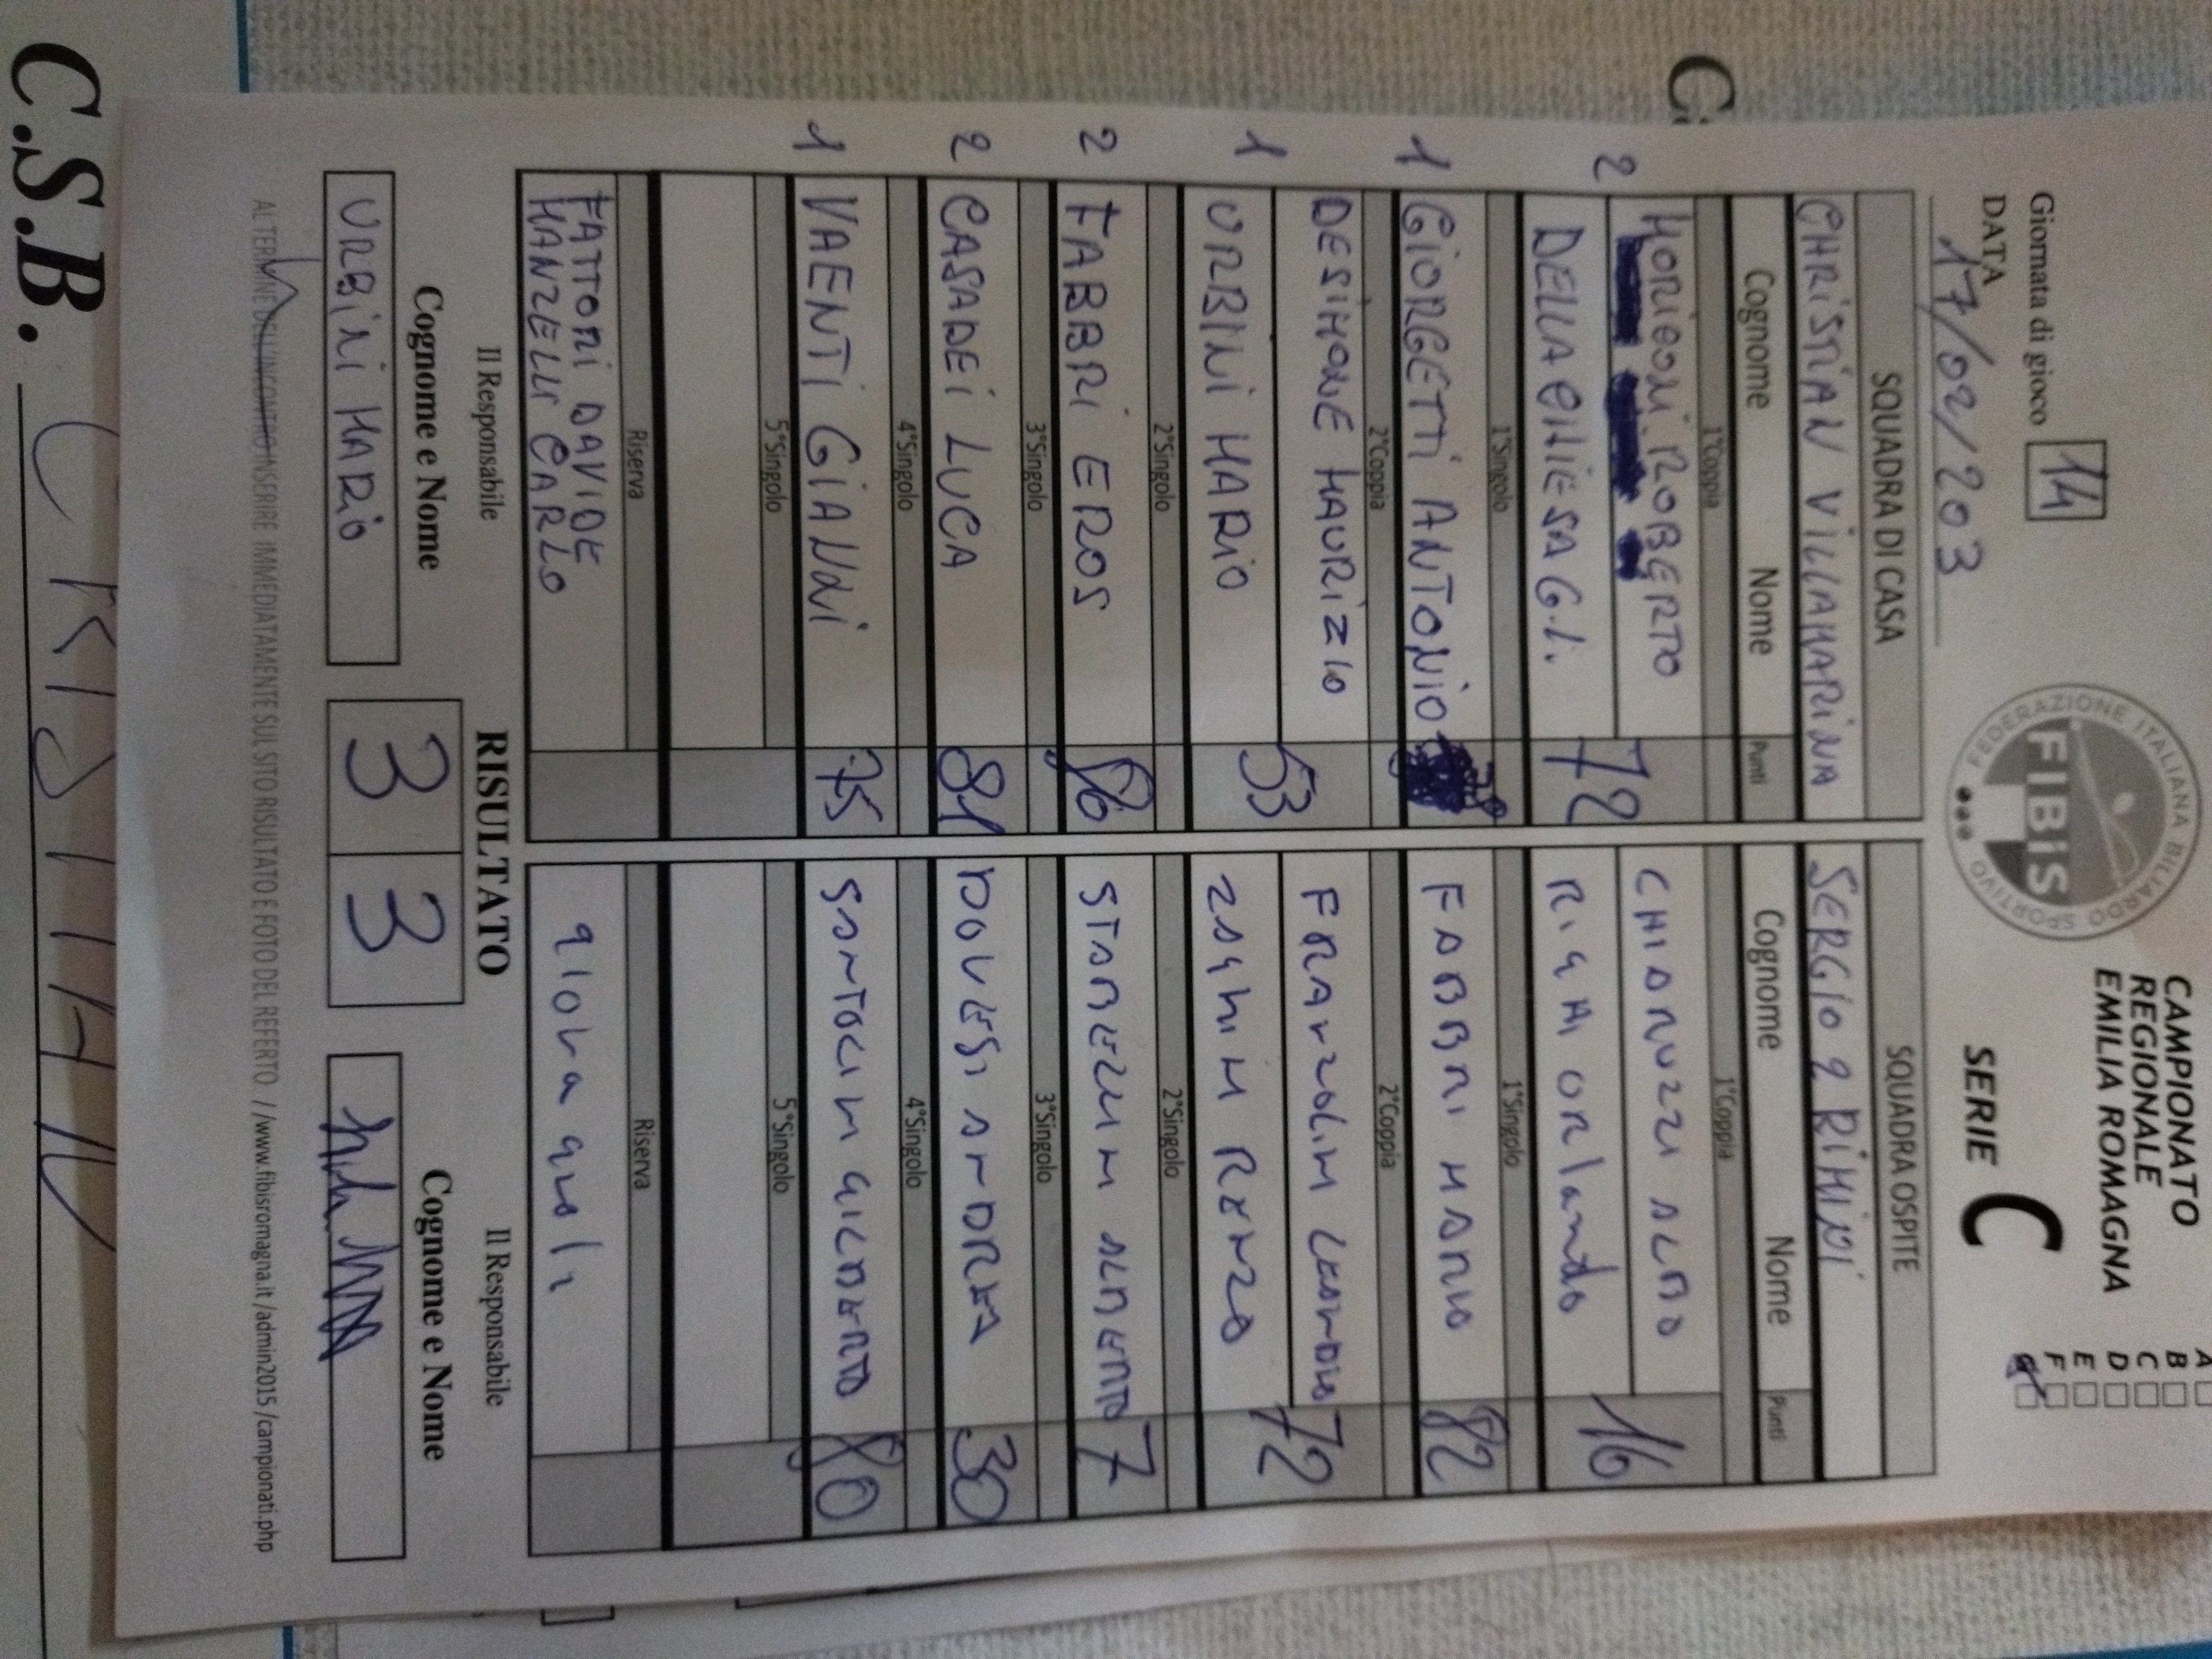 Giornata di gioco 14
DATA
17/02/203
FEDERAZIONE ITALIANA BILIARDO SPORTIVO
FIBIS
CAMPIONATO
REGIONALE
EMILIA ROMAGNA
SERIE C
A
B
C
D
E
F
SQUADRA DI CASA
SQUADRA OSPITE
CHRISTIAN VILLAMARINA
SERGIO 2 RIMINI
Cognome Nome Punti
Cognome Nome Punti
1°Coppia
1°Coppia
2
MORIGONI ROBERTO
DELLA CHIESA G.L.
72
CHIARUZZI ALDO
RIGHI ORLANDO
16
1°Singolo
1°Singolo
1
GIORGETTI ANTONIO
FABBRI MARIO
82
2°Coppia
2°Coppia
1
DESIMONE MAURIZIO
URBINI MARIO
53
FRANZOLINI
ZAGHINI RENZO
72
2°Singolo
2°Singolo
2
FABBRI EROS
86
ALBERTO
7
3°Singolo
3°Singolo
2
CASADEI LUCA
81
ANDREA
30
4°Singolo
4°Singolo
1
VAENTI GIANNI
75
SANTOLINI GILBERTO
80
5°Singolo
5°Singolo
Riserva
Riserva
FATTORI DAVIDE
MANZELLI CARLO
Il Responsabile
RISULTATO
Il Responsabile
Cognome e Nome
3 3
Cognome e Nome
URBINI MARIO
AL TERMINE DELL'INCONTRO INSERIRE IMMEDIATAMENTE SUL SITO RISULTATO E FOTO DEL REFERTO //www.fibisromagna.it /admin2015 /campionati.php
C.S.B. CRISTIAN